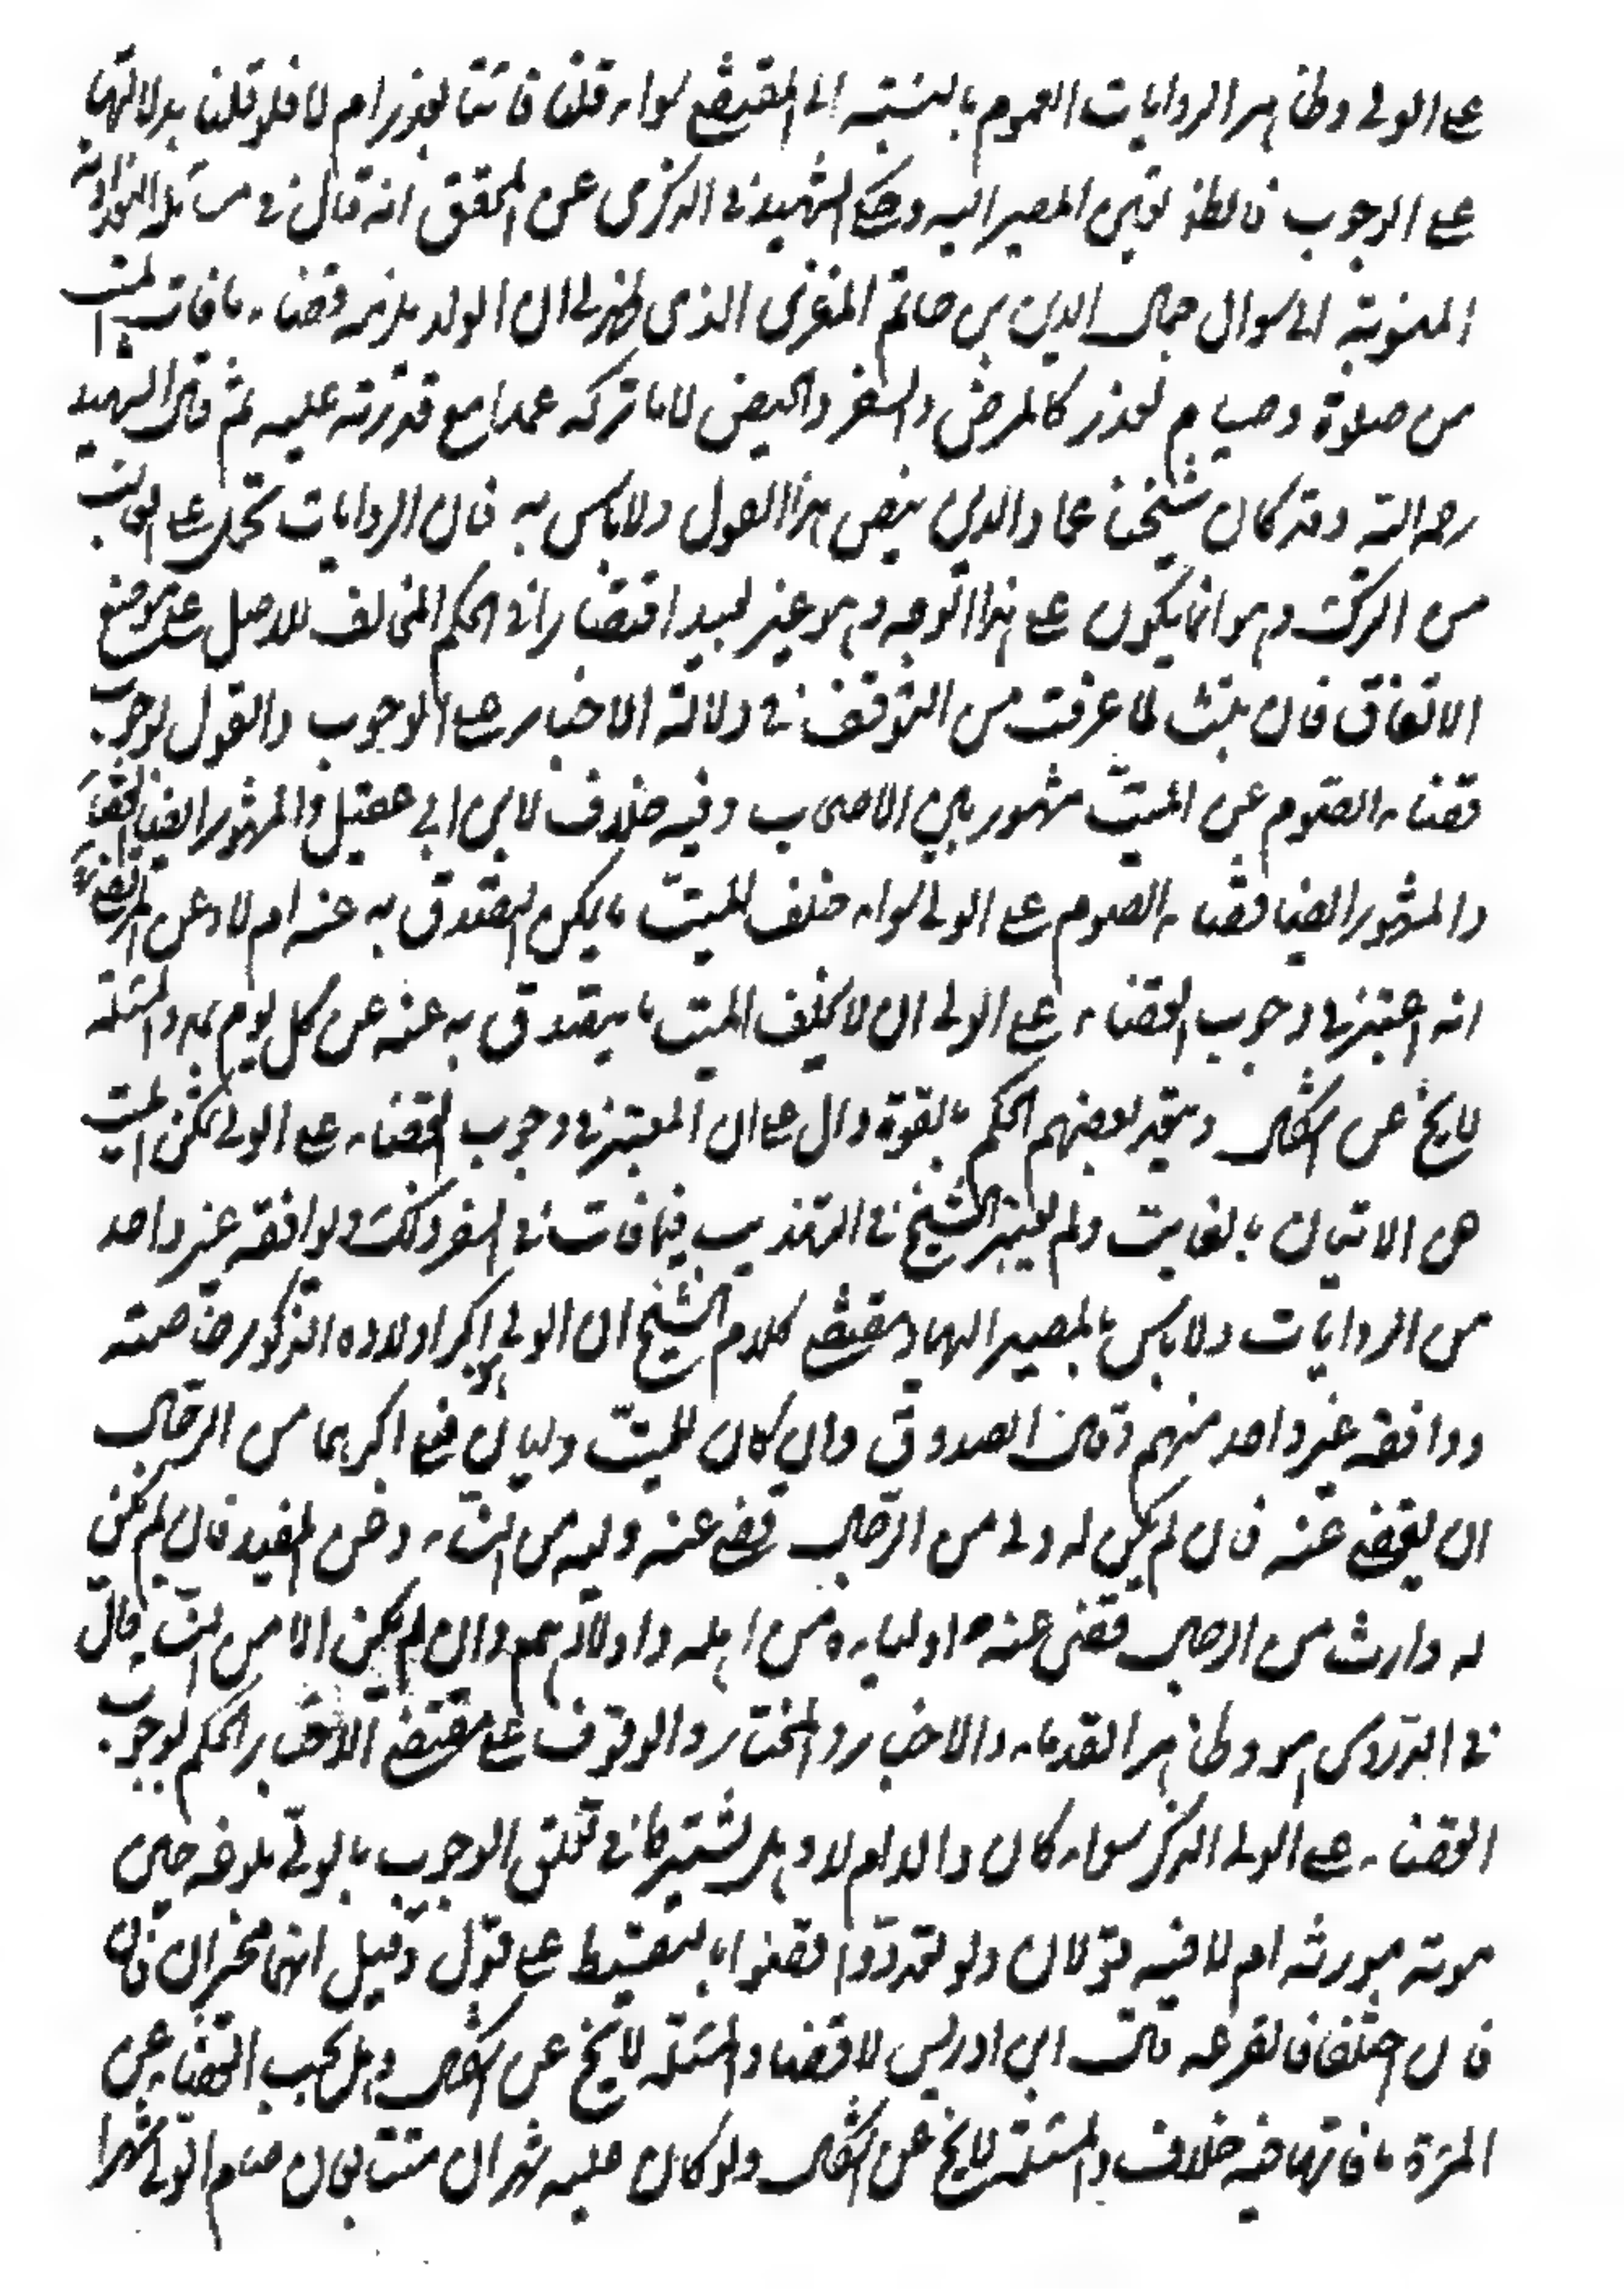 على الولي وظاهر الروايات العموم بالنسبة الى المقتضي سواء قلنا فاتتا بعذر ام لا فلو قلنا بدلالتها
على الوجوب فالظاهر تعين المصير اليه وحكى الشهيد في الذكرى عن المحقق انه قال في مسائله البغدادية
المنسوبة الى سوال جمال الدين بن حاتم المغربي الذي ظهر لي ان الولد يلزمه قضاء ما فات الميت
من صلاة وصيام لعذر كالمرض والسفر والحيض لا ما تركه عمدا مع قدرته عليه ثم قال الشهيد
رحمه الله وقد كان شيخنا عماد الدين ينصر هذا القول ولا باس به فان الروايات تحمل على الغالب
من الترك وهو انما يكون على هذا الوجه وهو غير بعيد اقتصارا في الحكم المخالف للاصل على موضع
الاتفاق فان ثبت لما عرفت من التوقف في دلالة الاخبار على الوجوب والقول بوجوب
قضاء الصوم عن الميت مشهور بين الاصحاب وفيه خلاف لابن ابي عقيل والمشهور ايضا
والمشهور ايضا قضاء الصوم على الولي سواء خلف الميت ما يمكن التصدق به عنه ام لا وعن المرتضى
انه اعتبر في وجوب القضاء على الولي ان لا يخلف الميت ما يتصدق به عنه عن كل يوم بمد والمسئلة
لا يخ عن اشكال وينجد بعضهم الحكم بالقوة دال على ان المعتبر في وجوب القضاء على الولي تمكن الميت
من الاتيان بالفايت ولم يعتبر الشيخ في التهذيب فيما فات في السفر ذلك ويوافقه غير واحد
من الروايات ولا باس بالمصير اليها ومقتضى كلام الشيخ ان الولي اكبر اولاده الذكور خاصته
ووافقه غير واحد منهم وقال الصدوق وان كان للميت وليان فعلى اكبرهما من الرجال
ان يقضي عنه فان لم يكن له ولي من الرجال قضى عنه وليه من النساء وعن المفيد فان لم يكن
له وارث من الرجال قضى عنه اولياءه من اهله واولادهم وان لم يكن الا من النساء قال
في الدروس هو وظاهر القدماء والاخبار والمختار والوقوف على مقتضى الاخبار الحكم بوجوب
القضاء على الولي الذكر سواء كان والدا ام لا وهل يشترط في تعلق الوجوب بالولي بلوغه حين
موته مورثه ام لا فيه قولان ولو تعددوا قضوا بالتقسيط على قول وقيل انهما مخيران فان
فان اختلفا فالقرعة قال ابن ادريس لا قضاء والمسئلة لا يخ عن اشكال وهل يجب القضاء عن
المرئة ما فاتها فيه خلاف والمسئلة لا يخ عن اشكال ولو كان عليه شهران متتابعان صام الولي شهرا